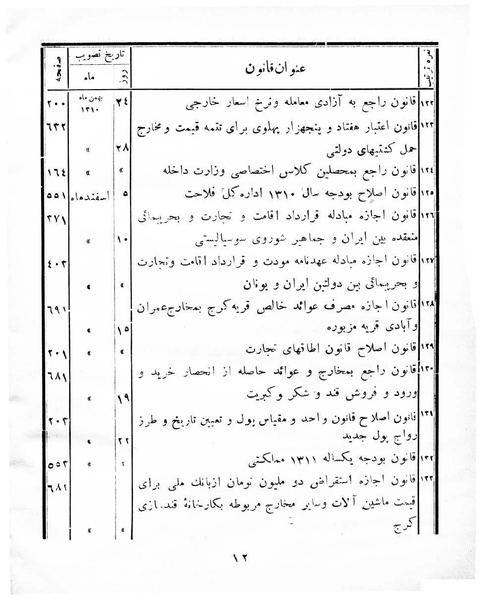 نمره ترتیب عنوان قانون تاریخ تصویب صفحه
روز ماه
۱۲۲ قانون راجع به آزادی معامله ونرخ اسعار خارجی ۲۴ بهمن ماه ۱۳۱۰ ۲۰۰
۱۲۳ قانون اعتبار هفتاد و پنجهزار پهلوی برای تتمه قیمت و مخارج ۶۳۲
حمل کشتیهای دولتی ۲۸ »
۱۲۴ قانون راجع بمحصلین کلاس اختصاصی وزارت داخله » » ۱۶۴
۱۲۵ قانون اصلاح بودجه سال ۱۳۱۰ اداره کل فلاحت ۵ اسفندماه ۵۵۱
۱۲۶ قانون اجازه مبادله قرارداد اقامت و تجارت و بحرپیمائی ۳۷۱
منعقده بین ایران و جماهیر شوروی سوسیالیستی ۱۰ »
۱۲۷ قانون اجازه مبادله عهدنامه مودت و قرارداد اقامت وتجارت ۴۰۳
و بحرپیمائی بین دولتین ایران و یونان » »
۱۲۸ قانون اجازه مصرف عوائد خالص قریه کرج بمخارج عمران ۶۹۱
و آبادی قریه مزبوره ۱۵ »
۱۲۹ قانون اصلاح قانون اطاقهای تجارت » » ۲۰۱
۱۳۰ قانون راجع بمخارج و عوائد حاصله از انحصار خرید و ۶۸۱
ورود و فروش قند و شکر وکبریت ۱۹ »
۱۳۱ قانون اصلاح قانون واحد و مقیاس پول و تعیین تاریخ و طرز ۲۰۳
رواج پول جدید ۲۲ »
۱۳۲ قانون بودجه یکساله ۱۳۱۱ مملکتی » » ۵۵۳
۱۳۳ قانون اجازه استقراض دو ملیون تومان ازبانک ملی برای ۶۸۲
قیمت ماشین آلات وسایر مخارج مربوطه بکارخانهٔ قند سازی
کرج » »
۱۲